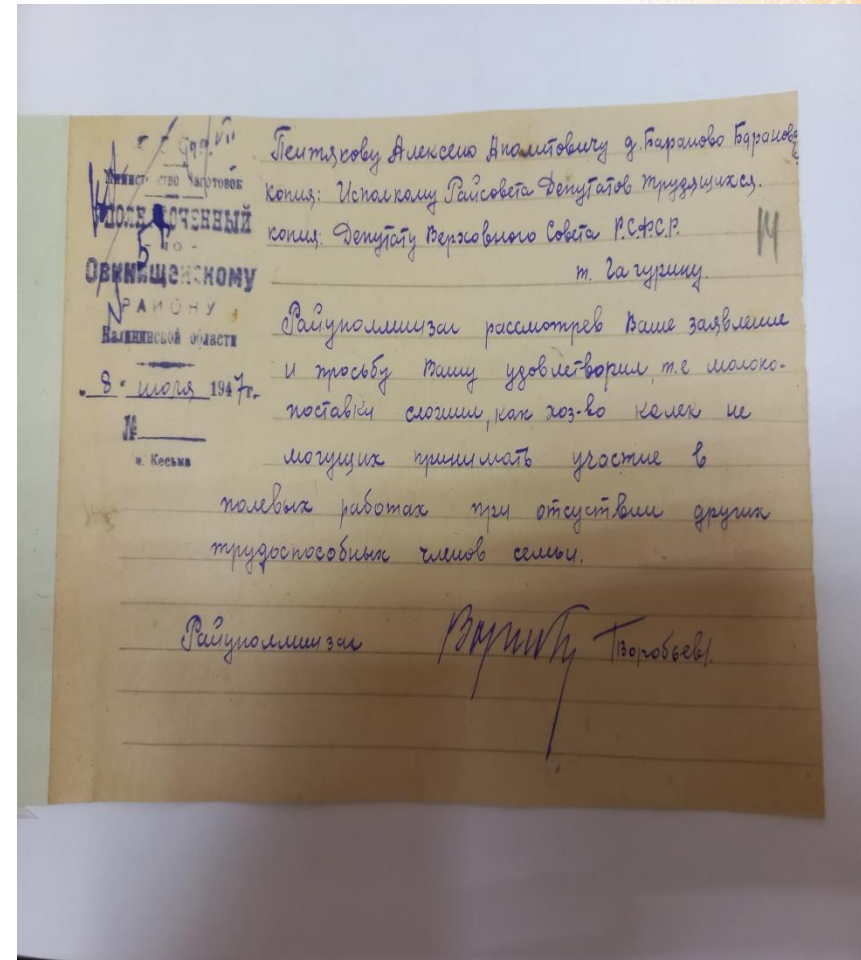 Министерство Заготовок
УПОЛНОМОЧЕННЫЙ
- по -
Овинищенскому
РАЙОНУ
Калининской области
"8" июля 1947г.
№
с. Кесьма
Алексею д. Бараново
копия: Исполкому Райсовета Депутатов трудящихся.
копия: Депутату Верховного Совета Р.С.Ф.С.Р.
т. Гагурину.
14
Райуполминзаг рассмотрев Ваше заявление
и просьбу Вашу удовлетворил, т.е молоко-
поставки сложил, как хоз-во калек не
могущих принимать участие в
полевых работах при отсуствии других
трудоспособных членов семьи.
Райуполминзаг /Воробьев/.